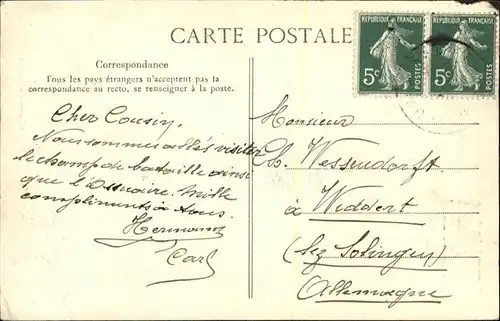 CARTE POSTALE
REPUBLIQUE FRANÇAISE
5c POSTES
REPUBLIQUE FRANÇAISE
5c POSTES
Correspondance
Tous les pays étrangers n'acceptent pas la
correspondance au recto, se renseigner à la poste.
Cher Cousin,
Nous sommes allés visiter
le champ de bataille ainsi
que l'Ossuaire. Mille
compliments à tous.
Hermann
Carl
Monsieur
Wessendorft
à Widdert
(bez Solingen)
Allemagne